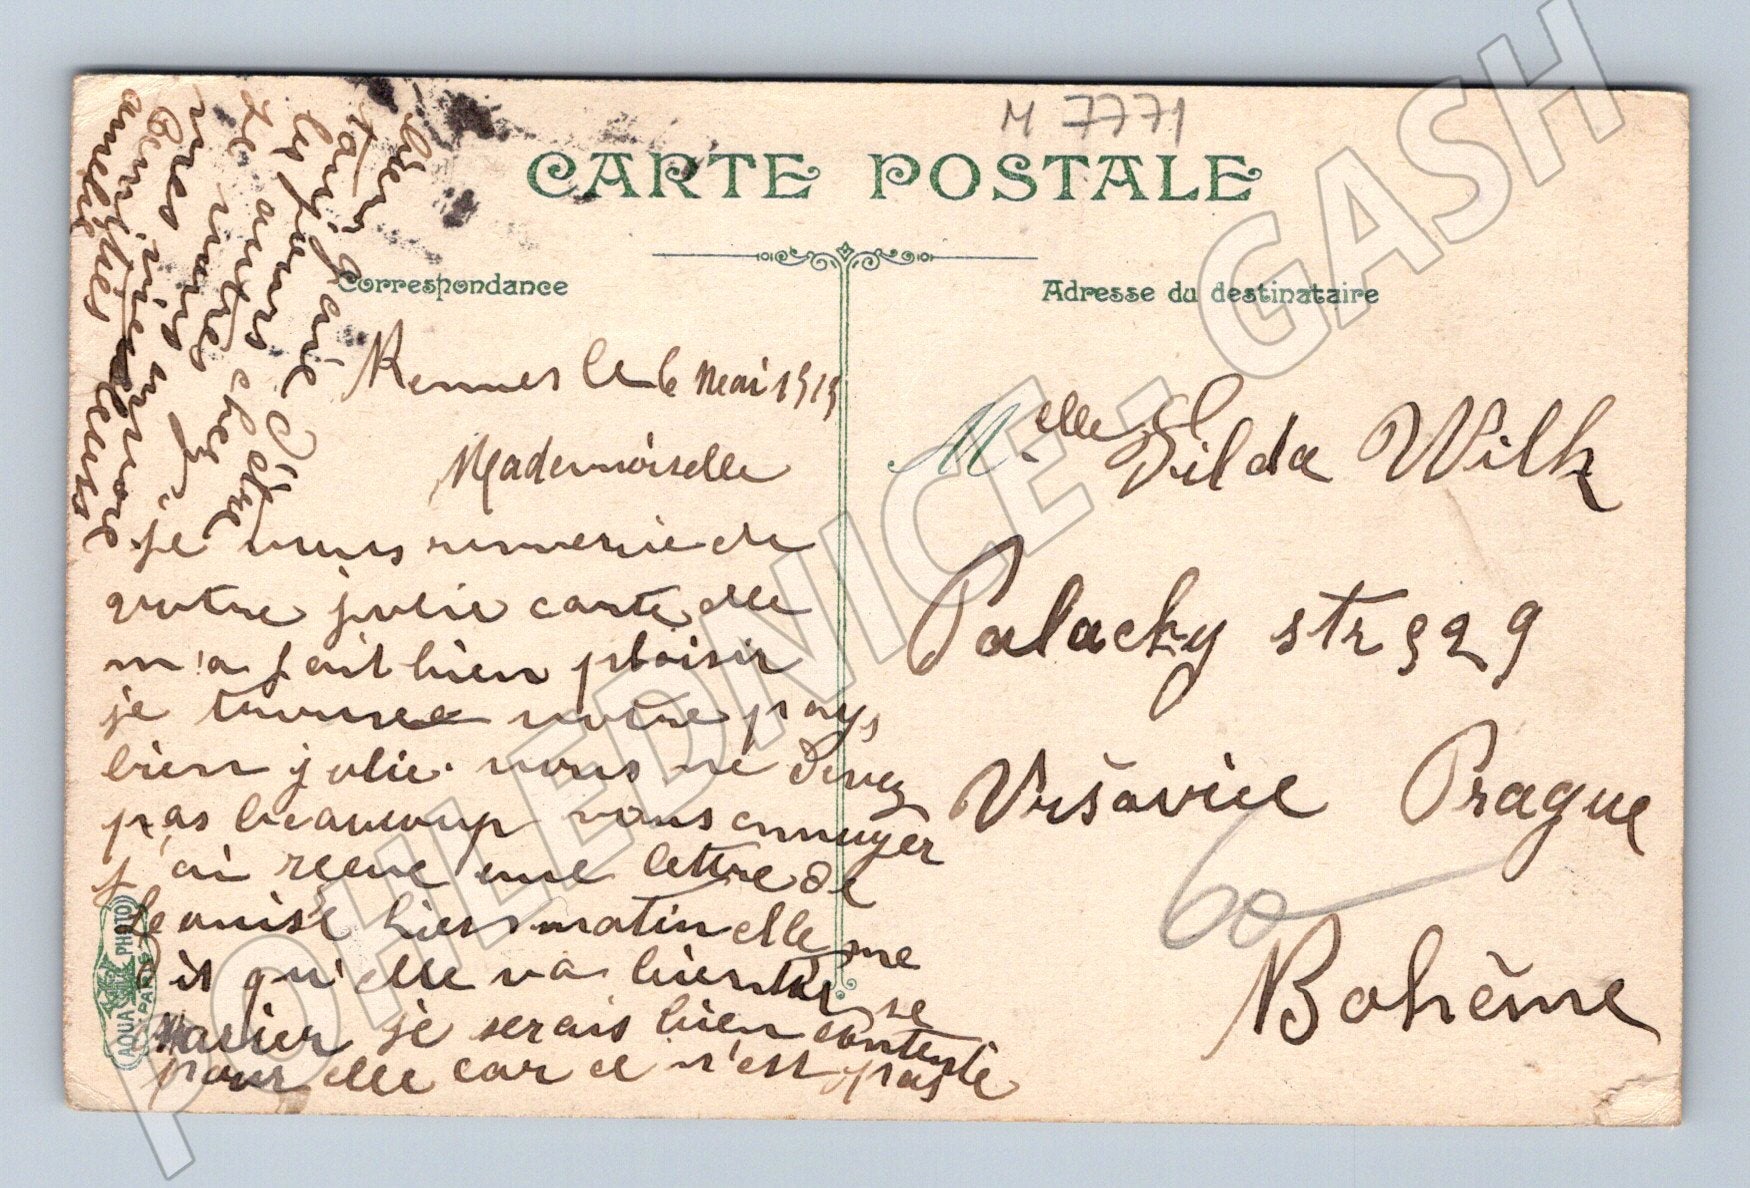 M 7771
CARTE POSTALE
Correspondance
Adresse du destinataire
Rennes le 6 mai 1919
Mademoiselle
je vous remercie de
votre jolie carte elle
m'a fait bien plaisir
je trouve votre pays
bien jolie. vous ne devez
pas beaucoup vous ennuyer
j'ai recue une lettre de
Leonise hier matin elle me
dit qu'elle va bientôt se
Marier je serais bien contente
pour elle car ce n'est pas
bien gaie d'être
toujours chez
les autres
Je vous
amitiés
Melle Gilda Wilk
Palacky str 929
Vršovice Prague
60
Bohême
AQUA PHOTO
PARIS
POHLEDNICE - GASH